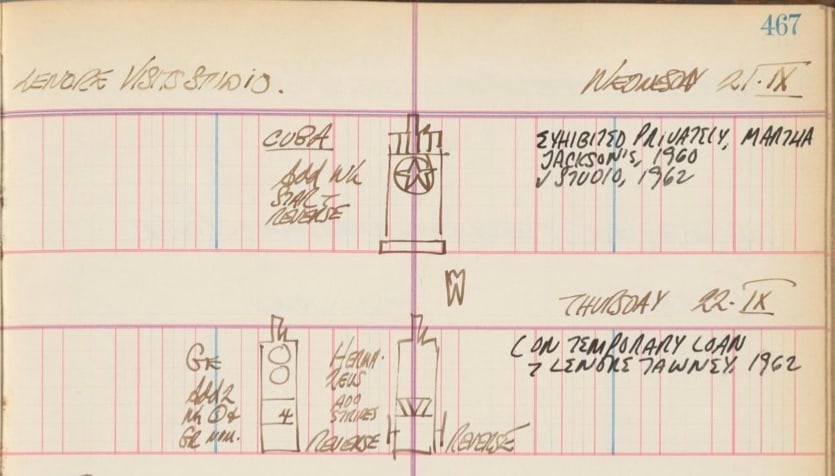 467
LENORE VISITS STUDIO.
WEDNESDAY 21·IX
CUBA
Add Wh
STAR -
REVERSE
EXHIBITED PRIVATELY, MARTHA
JACKSON'S, 1960
√ STUDIO, 1962
THURSDAY 22·IX
GE
Add 2
Wh
GR num.
4
HERMA·
ADD
STRIPES
REVERSE
REVERSE
(ON TEMPORARY LOAN
LENORE TAWNEY, 1962